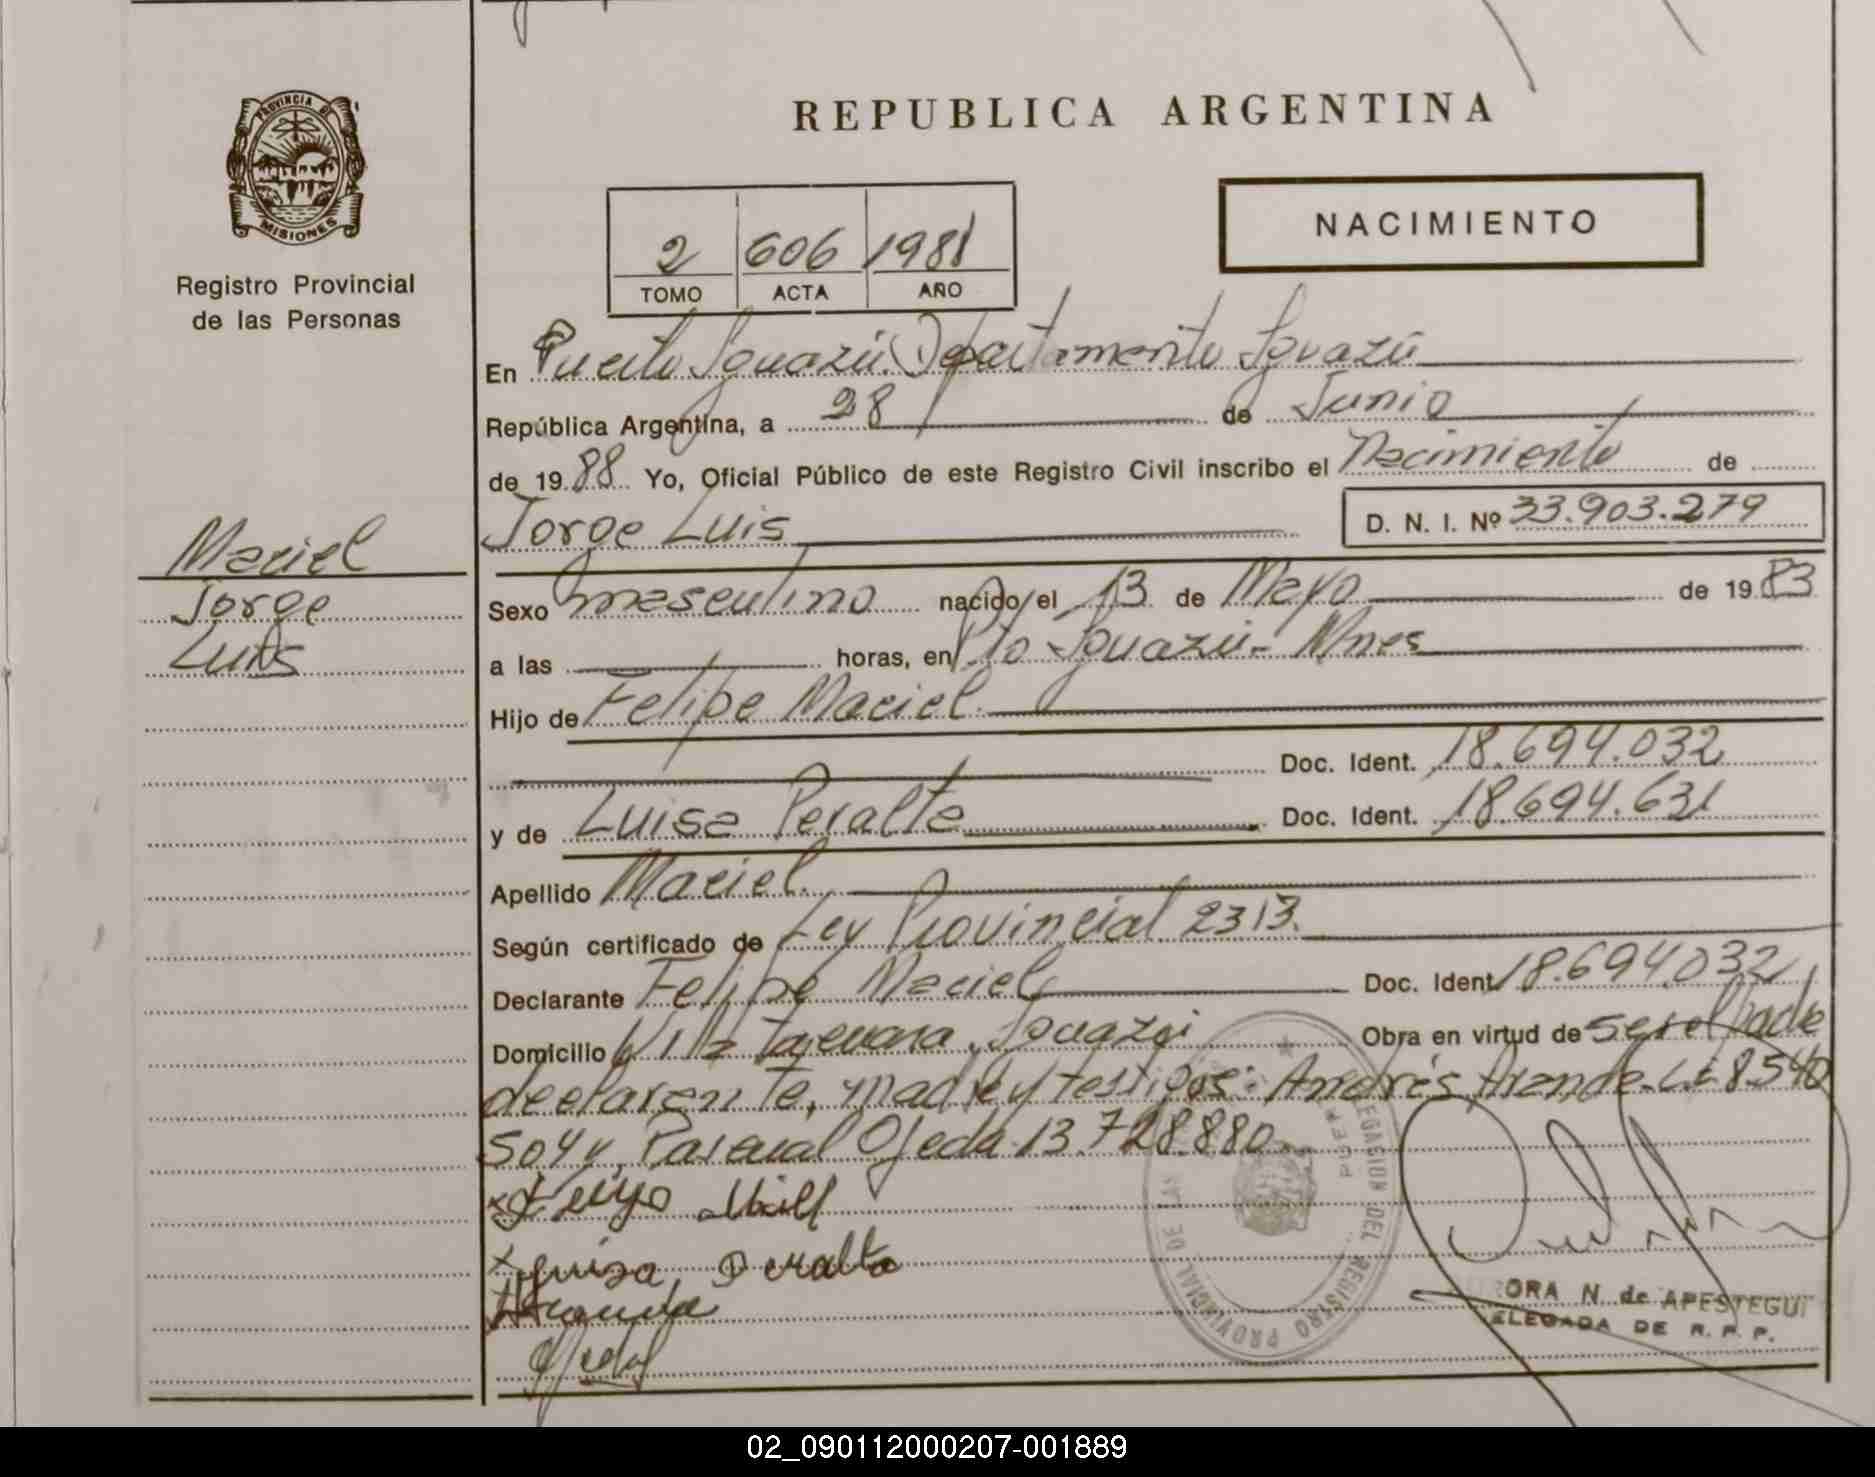 PROVINCIA DE
MISIONES
Registro Provincial
de las Personas
REPUBLICA ARGENTINA
NACIMIENTO
2 606 1988
TOMO ACTA AÑO
En Puerto Iguazú Departamento Iguazú
República Argentina, a 28 de Junio
de 1988 Yo, Oficial Público de este Registro Civil inscribo el Nacimiento de
Jorge Luis D. N. I. Nº 33.903.279
Maciel
Jorge
Luis
Sexo masculino nacido el 13 de Mayo de 1983
a las horas, en Pto Iguazú - Mnes
Hijo de Felipe Maciel
Doc. Ident. 18.694.032
y de Luisa Peralta Doc. Ident. 18.694.631
Apellido Maciel
Según certificado de Ley Provincial 2313.
Declarante Felipe Maciel Doc. Ident 18.694.032
Domicilio Villa Iguazú Obra en virtud de ser el Padre
declarante, madre y testigos: Andrés Aranda L.E 8540
504 y Pascual Ojeda 13.728.880
Luisa, Peralta
Aranda
Ojeda
DELEGACION DEL REGISTRO PROVINCIAL DE LAS
ORA N. de APESTEGUI
DELEGADA DE R. P. P.
02_090112000207-001889